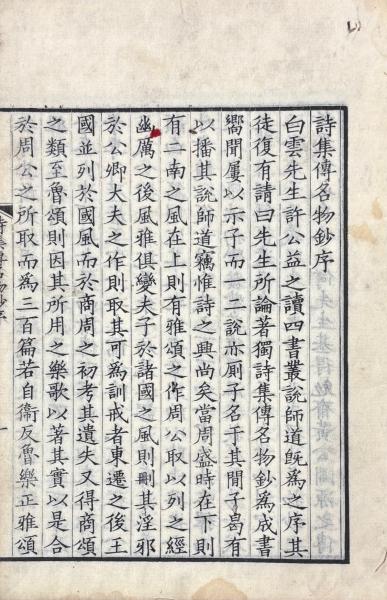 詩集傳名物鈔序
白雲先生許公益之讀四書叢說師道旣為之序其
徒復有請曰先生所論著獨詩集傳名物鈔為成書
嚮聞屢以示子而一二說亦厠子名于其閒子曷有
以播其說師道竊惟詩之興尚矣當周盛時在下則
有二南之風在上則有雅頌之作周公取以列之經
幽厲之後風雅俱變夫子於諸國之風則刪其淫邪
於公卿大夫之作則取其可為訓戒者東遷之後王
國並列於國風而於商周之初考其遺失又得商頌
之類至魯頌則因其所用之樂歌以著其實以是合
於周公之所取而為三百篇若自衞反魯樂正雅頌